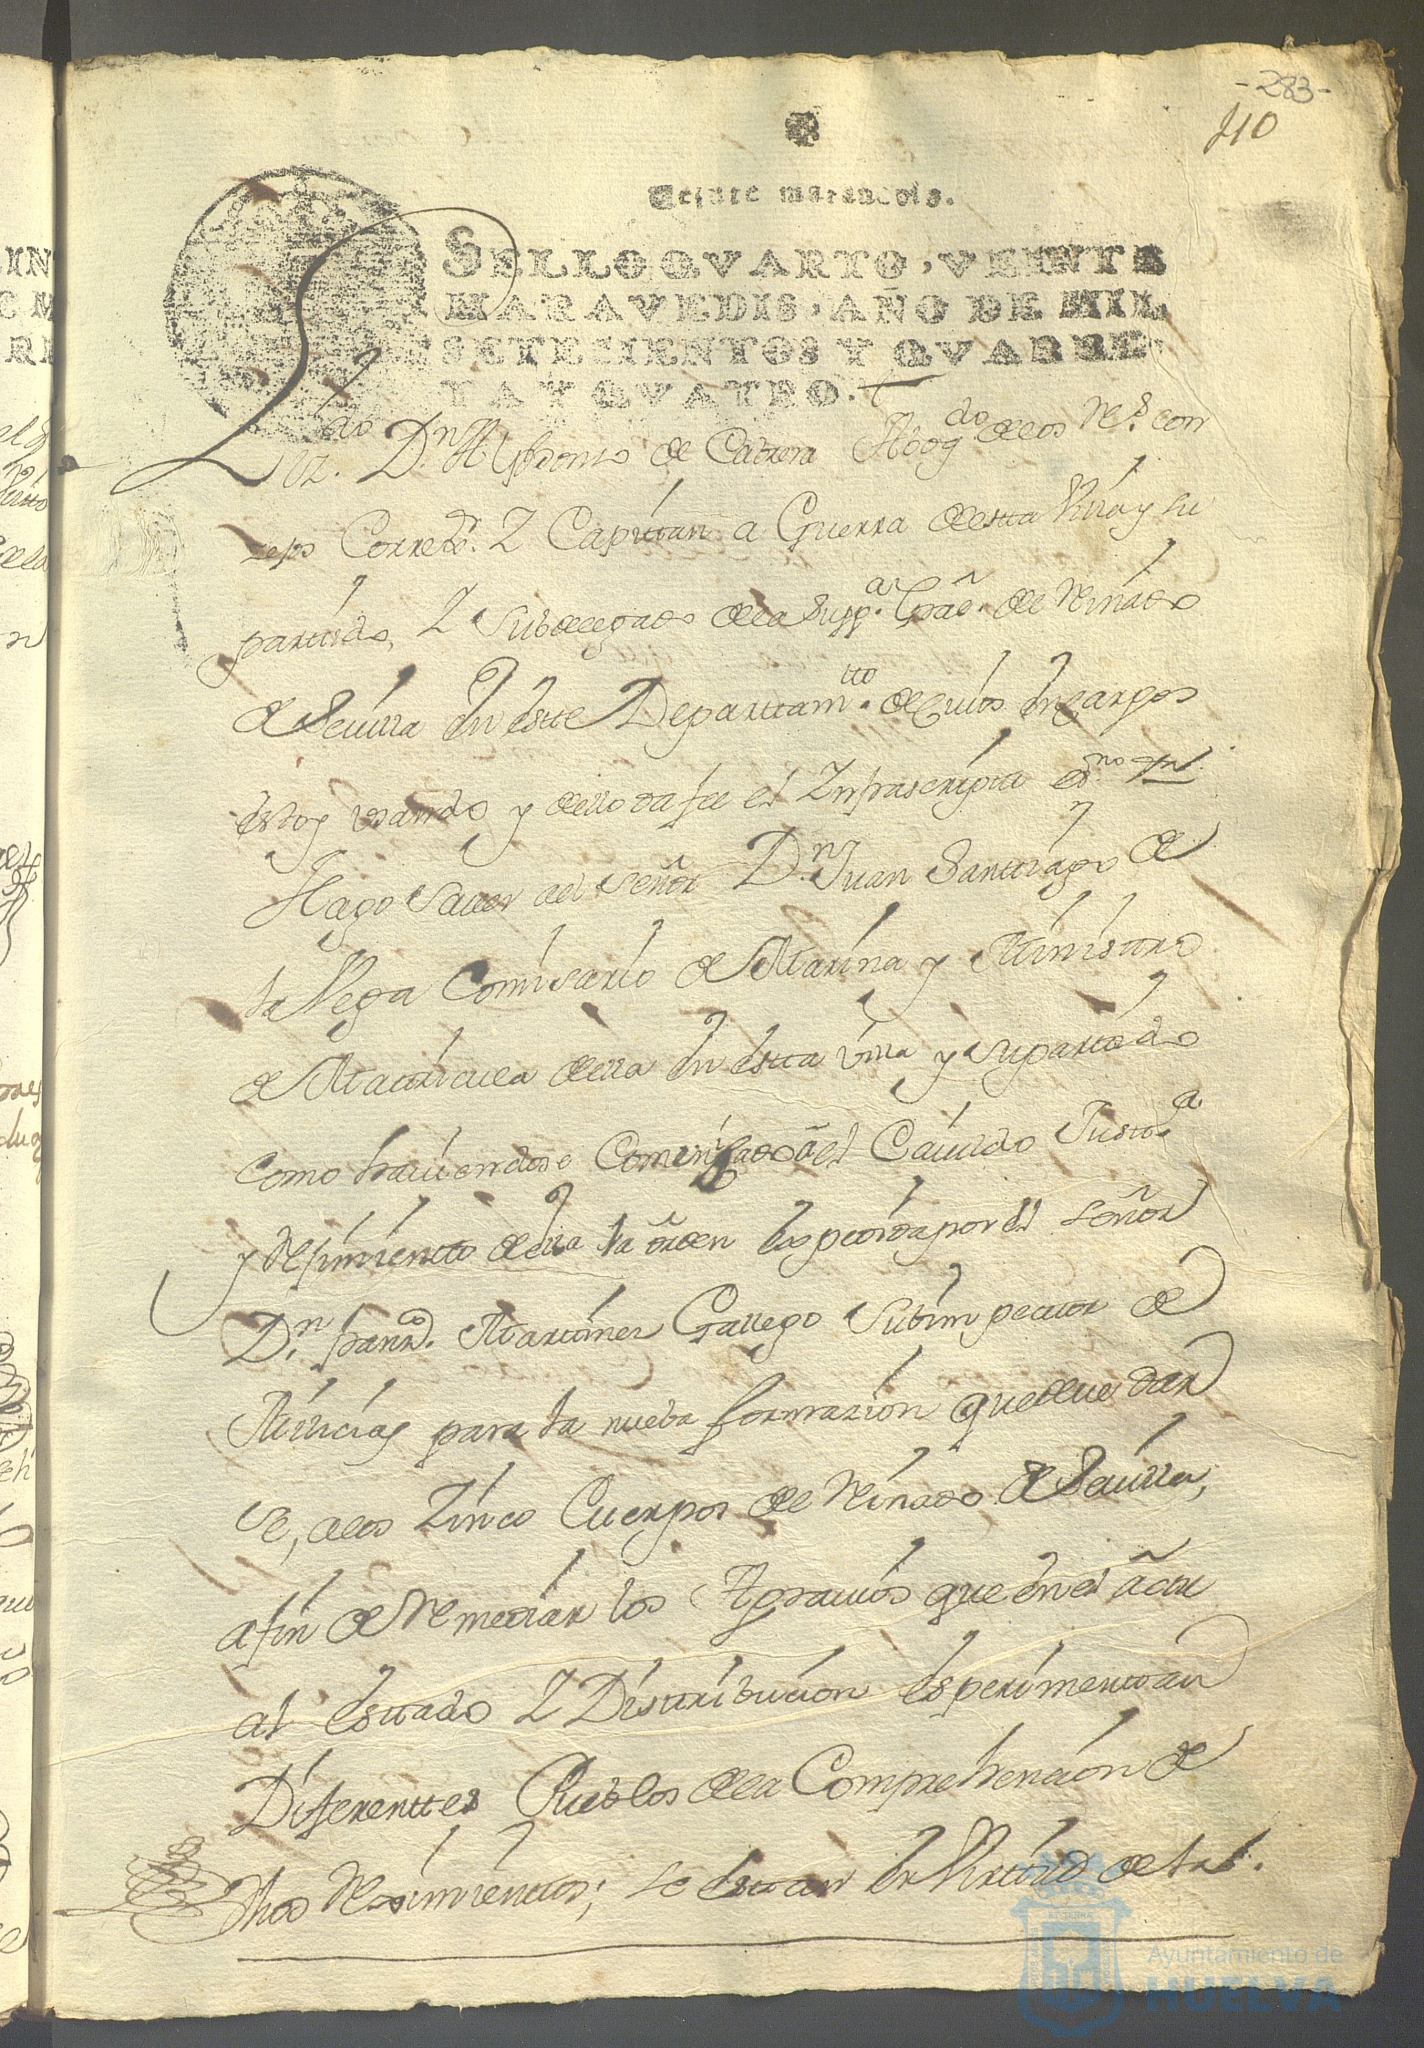 -283-
110
Veinte maravedis.
SELLO QVARTO, VEINTE
MARAVEDIS, AÑO DE MIL
SETECIENTOS Y QVAREN-
TA Y QVATRO.
Lizdo. Dn. Alfonso de Cabrera Abogdo. de los Rs. con
sejos Corregr. Z Capittan a Guerra de estta Villa y su
parttido, Z Subdelegado de la Supp.a de Reinado
de Sevilla en estte Departtamtto. de cuios encargos
estoy usando y de ello da fee el Infrascripto esno.
Hago saver al señor Dn. Juan Santtiago de
la Vega Comisario de Marina y Ministtro
de Mattricula de ella en estta villa y su parttido
como haviendose el Cavildo Justt.a
y Reximientto de ella la orden expedida por el señor
Dn. Martinez Gallego Subinspecttor de
Milicias para la nueba formazion que deve dar
se, a los Zinco Cuerpos de Reinado de Sevilla,
a fin de Remediar los Agravios que en el actu
al esttado Z Disttribucion esperimenttan
Diferenttes Pueblos de la Comprehencion de
dhos Reximienttos; se esttan en Virttud de tal.
Ayuntamiento de
HUELVA